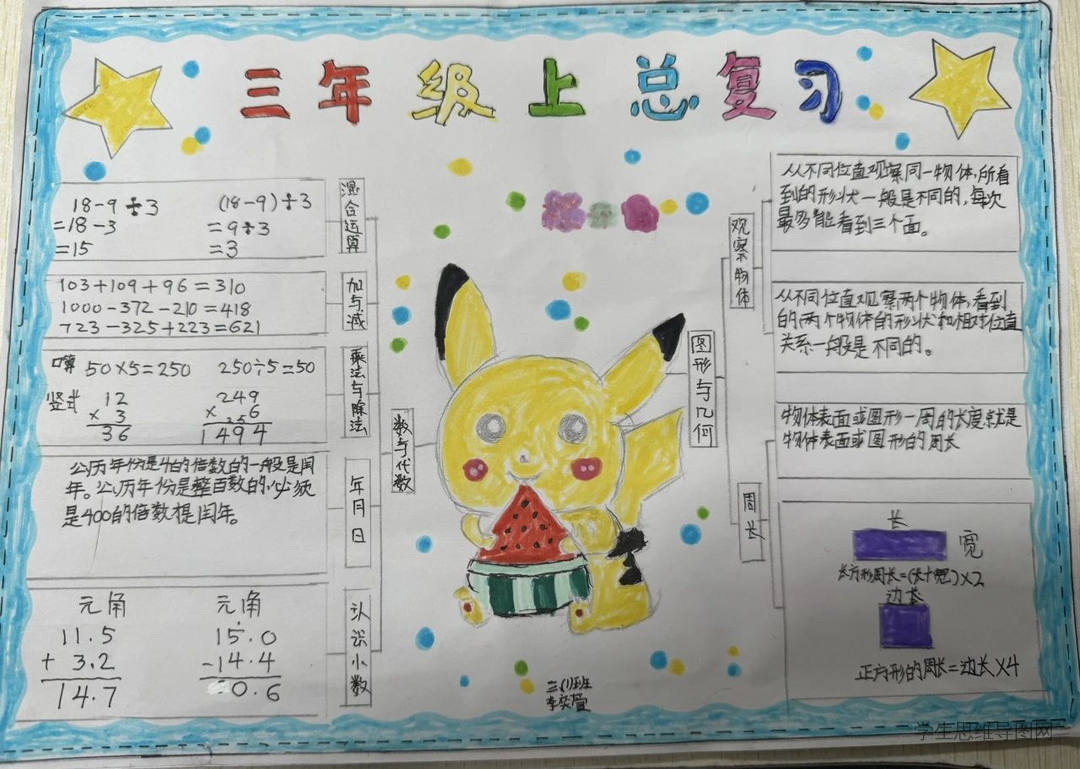 三年级上总复习
混合运算
18-9÷3
=18-3
=15
(18-9)÷3
=9÷3
=3
加与减
103+109+96=310
1000-372-210=418
723-325+223=621
乘法与除法
口算 50×5=250 250÷5=50
竖式
12
× 3
36
249
× 6
25
1494
数与代数
年月日
公历年份是4的倍数的一般是闰
年。公历年份是整百数的,必须
是400的倍数才是闰年。
认识小数
元角
11.5
+ 3.2
14.7
元角
15.0
-14.4
0.6
图形与几何
观察物体
从不同位直观察同一物体,所看
到的形状一般是不同的,每次
最多能看到三个面。
从不同位直观察两个物体,看到
的两个物体的形状和相对位直
关系一般是不同的。
周长
物体表面或图形一周的长度就是
物体表面或图形的周长
长
宽
长方形周长=(长+宽)×2
边长
正方形的周长=边长×4
三(1)班
学生思维导图网